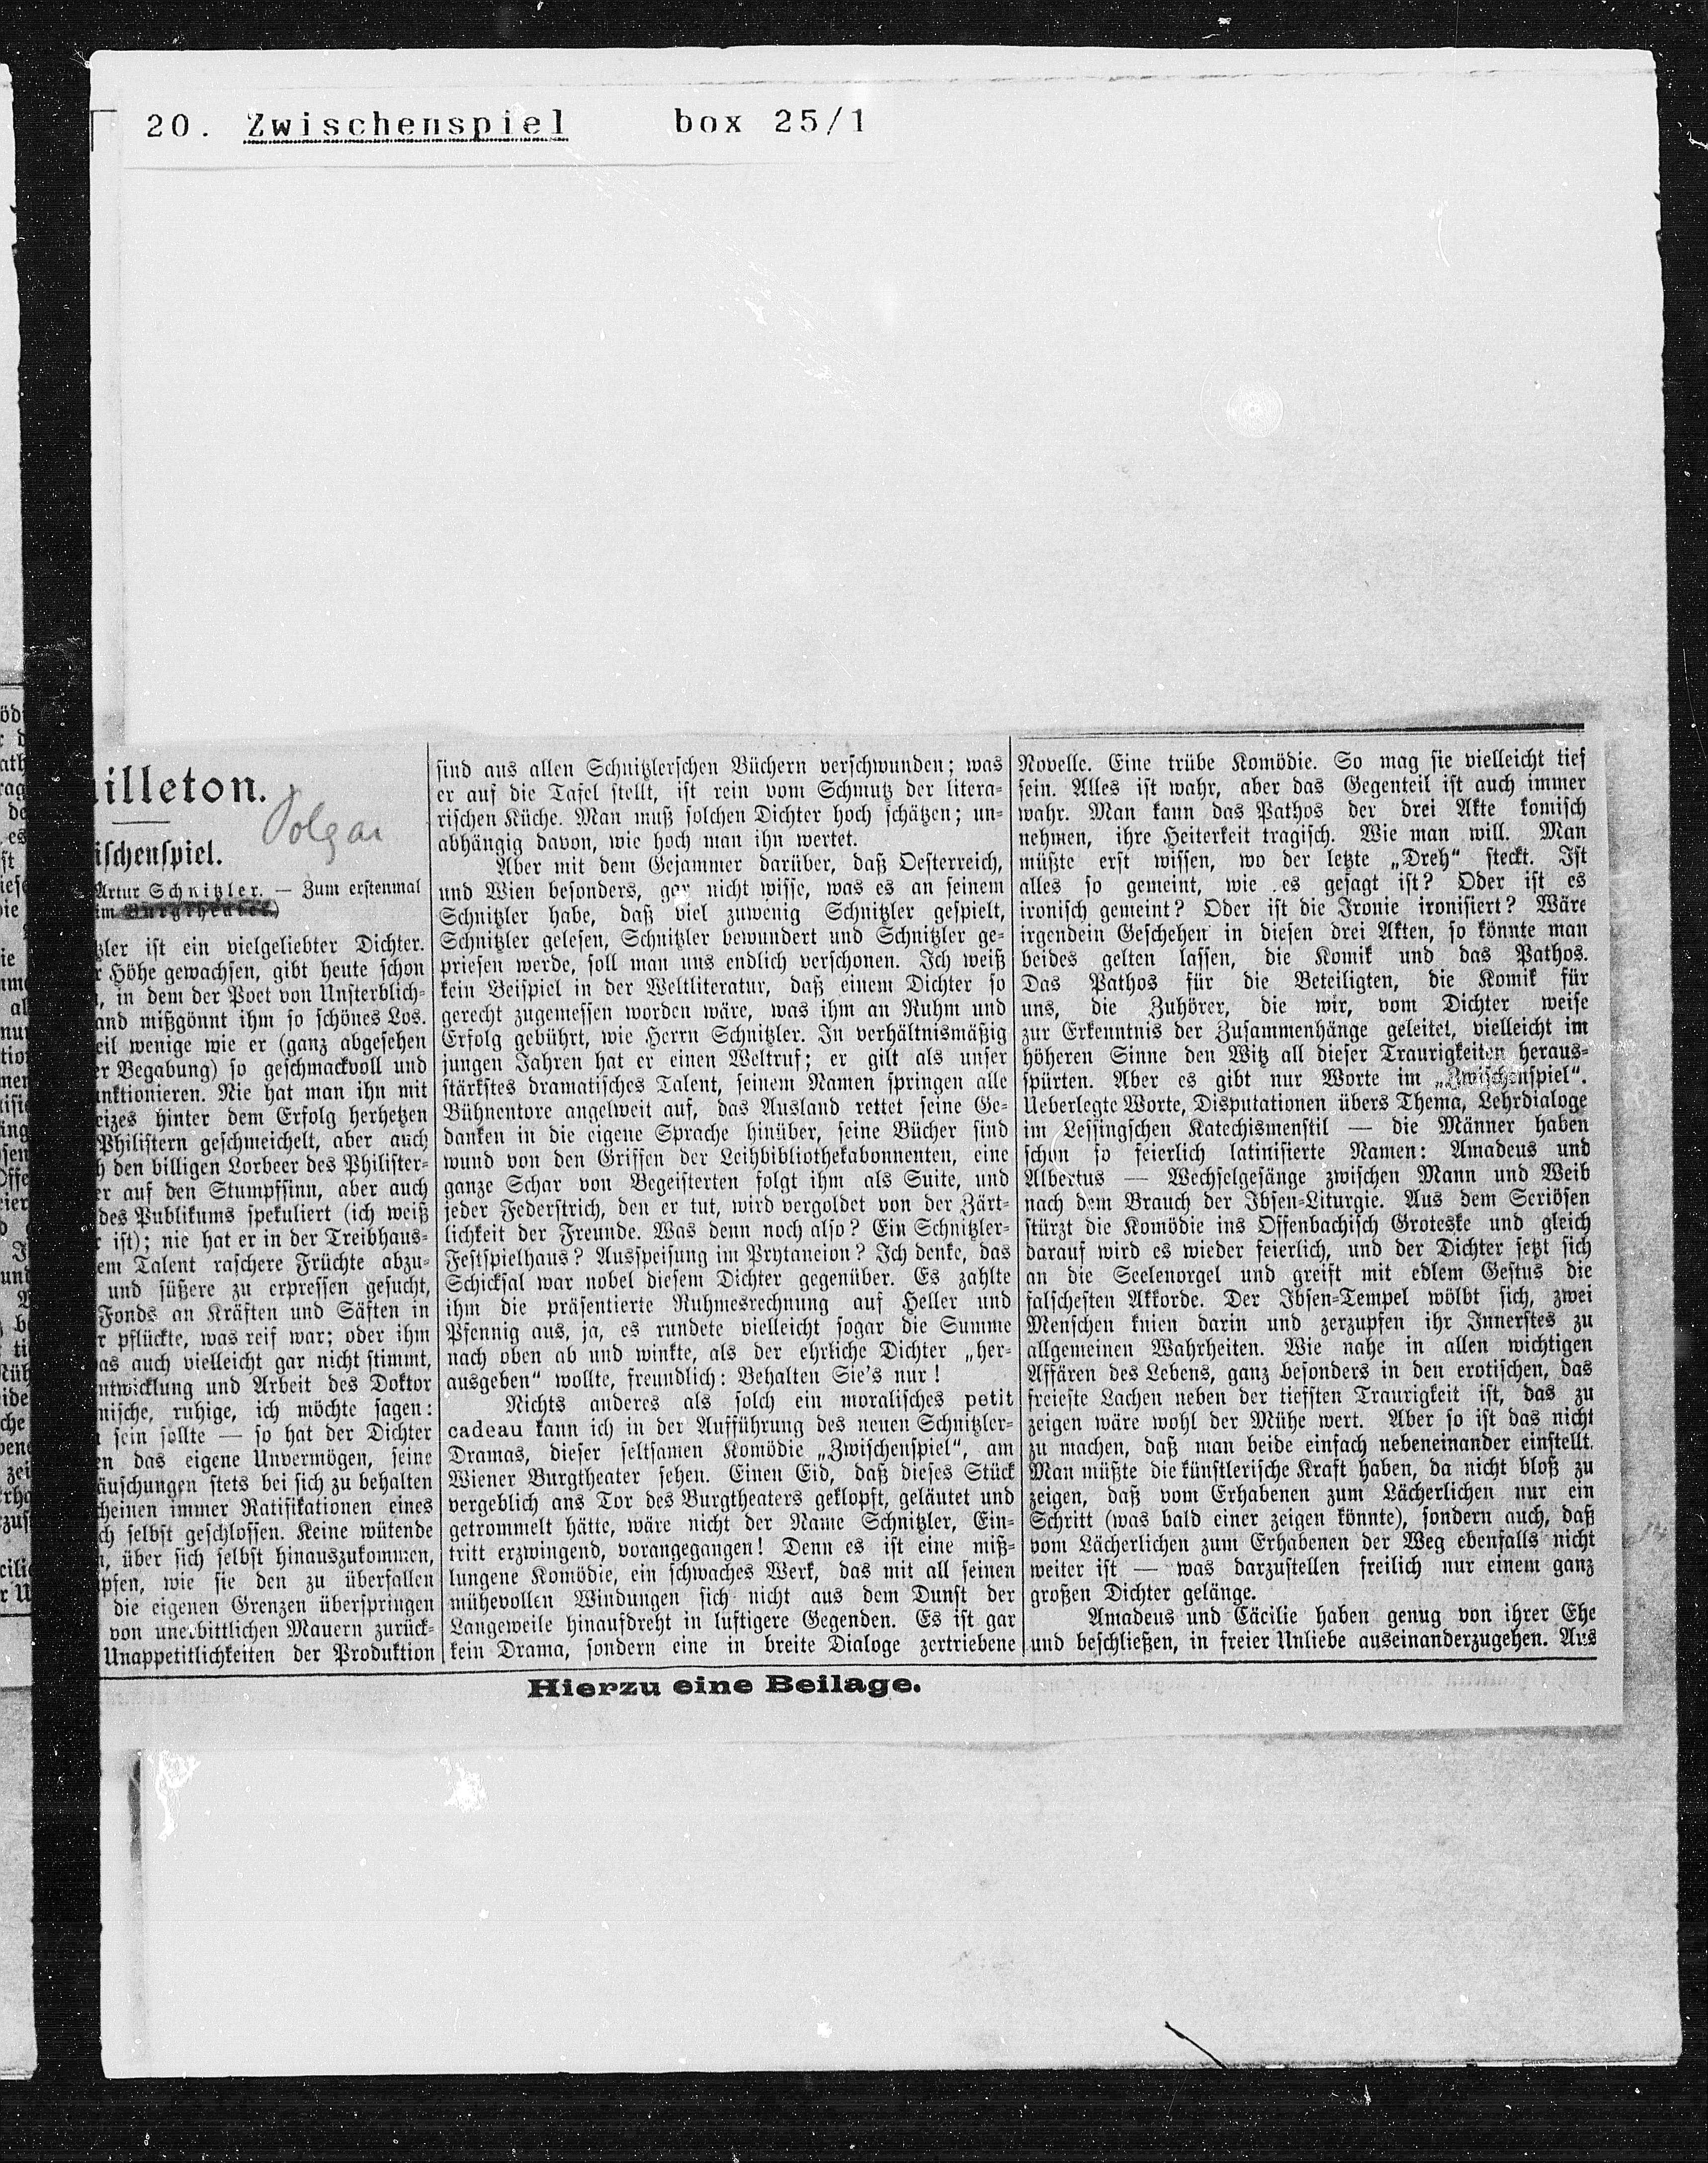 20. Zwischenspiel box 25/1
illeton.
Polgar
ischenspiel.
Artur Schnitzler. — Zum erstenmal
im Burgtheater.)
tzler ist ein vielgeliebter Dichter.
r Höhe gewachsen, gibt heute schon
, in dem der Poet von Unsterblich-
and mißgönnt ihm so schönes Los.
eil wenige wie er (ganz abgesehen
er Begabung) so geschmackvoll und
unktionieren. Nie hat man ihn mit
eizes hinter dem Erfolg herhetzen
Philistern geschmeichelt, aber auch
h den billigen Lorbeer des Philister-
er auf den Stumpfsinn, aber auch
des Publikums spekuliert (ich weiß
r ist); nie hat er in der Treibhaus-
em Talent raschere Früchte abzu-
und süßere zu erpressen gesucht,
Fonds an Kräften und Säften in
r pflückte, was reif war; oder ihm
as auch vielleicht gar nicht stimmt,
ntwicklung und Arbeit des Doktor
nische, ruhige, ich möchte sagen:
sein sollte — so hat der Dichter
en das eigene Unvermögen, seine
äuschungen stets bei sich zu behalten
cheinen immer Ratifikationen eines
ch selbst geschlossen. Keine wütende
, über sich selbst hinauszukommen,
pfen, wie sie den zu überfallen
die eigenen Grenzen überspringen
von unerbittlichen Mauern zurück-
Unappetitlichkeiten der Produktion
sind aus allen Schnitzlerschen Büchern verschwunden; was
er auf die Tafel stellt, ist rein vom Schmutz der litera-
rischen Küche. Man muß solchen Dichter hoch schätzen; un-
abhängig davon, wie hoch man ihn wertet.
Aber mit dem Gejammer darüber, daß Oesterreich,
und Wien besonders, gar nicht wisse, was es an seinem
Schnitzler habe, daß viel zuwenig Schnitzler gespielt,
Schnitzler gelesen, Schnitzler bewundert und Schnitzler ge-
priesen werde, soll man uns endlich verschonen. Ich weiß
kein Beispiel in der Weltliteratur, daß einem Dichter so
gerecht zugemessen worden wäre, was ihm an Ruhm und
Erfolg gebührt, wie Herrn Schnitzler. In verhältnismäßig
jungen Jahren hat er einen Weltruf; er gilt als unser
stärkstes dramatisches Talent, seinem Namen springen alle
Bühnentore angelweit auf, das Ausland rettet seine Ge-
danken in die eigene Sprache hinüber, seine Bücher sind
wund von den Griffen der Leihbibliothekabonnenten, eine
ganze Schar von Begeisterten folgt ihm als Suite, und
jeder Federstrich, den er tut, wird vergoldet von der Zärt-
lichkeit der Freunde. Was denn noch also? Ein Schnitzler-
Festspielhaus? Ausspeisung im Prytaneion? Ich denke, das
Schicksal war nobel diesem Dichter gegenüber. Es zahlte
ihm die präsentierte Ruhmesrechnung auf Heller und
Pfennig aus, ja, es rundete vielleicht sogar die Summe
nach oben ab und winkte, als der ehrliche Dichter „her-
ausgeben“ wollte, freundlich: Behalten Sie's nur!
Nichts anderes als solch ein moralisches petit
cadeau kann ich in der Aufführung des neuen Schnitzler-
Dramas, dieser seltsamen Komödie „Zwischenspiel“, am
Wiener Burgtheater sehen. Einen Eid, daß dieses Stück
vergeblich ans Tor des Burgtheaters geklopft, geläutet und
getrommelt hätte, wäre nicht der Name Schnitzler, Ein-
tritt erzwingend, vorangegangen! Denn es ist eine miß-
lungene Komödie, ein schwaches Werk, das mit all seinen
mühevollen Windungen sich nicht aus dem Dunst der
Langeweile hinaufdreht in luftigere Gegenden. Es ist gar
kein Drama, sondern eine in breite Dialoge zertriebene
Novelle. Eine trübe Komödie. So mag sie vielleicht tief
sein. Alles ist wahr, aber das Gegenteil ist auch immer
wahr. Man kann das Pathos der drei Akte komisch
nehmen, ihre Heiterkeit tragisch. Wie man will. Man
müßte erst wissen, wo der letzte „Dreh“ steckt. Ist
alles so gemeint, wie es gesagt ist? Oder ist es
ironisch gemeint? Oder ist die Ironie ironisiert? Wäre
irgendein Geschehen in diesen drei Akten, so könnte man
beides gelten lassen, die Komik und das Pathos.
Das Pathos für die Beteiligten, die Komik für
uns, die Zuhörer, die wir, vom Dichter weise
zur Erkenntnis der Zusammenhänge geleitet, vielleicht im
höheren Sinne den Witz all dieser Traurigkeiten heraus-
spürten. Aber es gibt nur Worte im „Zwischenspiel“.
Ueberlegte Worte, Disputationen übers Thema, Lehrdialoge
im Lessingschen Katechismenstil — die Männer haben
schon so feierlich latinisierte Namen: Amadeus und
Albertus — Wechselgesänge zwischen Mann und Weib
nach dem Brauch der Ibsen-Liturgie. Aus dem Seriösen
stürzt die Komödie ins Offenbachisch Groteske und gleich
darauf wird es wieder feierlich, und der Dichter setzt sich
an die Seelenorgel und greift mit edlem Gestus die
falschesten Akkorde. Der Ibsen-Tempel wölbt sich, zwei
Menschen knien darin und zerzupfen ihr Innerstes zu
allgemeinen Wahrheiten. Wie nahe in allen wichtigen
Affären des Lebens, ganz besonders in den erotischen, das
freieste Lachen neben der tiefsten Traurigkeit ist, das zu
zeigen wäre wohl der Mühe wert. Aber so ist das nicht
zu machen, daß man beide einfach nebeneinander einstellt.
Man müßte die künstlerische Kraft haben, da nicht bloß zu
zeigen, daß vom Erhabenen zum Lächerlichen nur ein
Schritt (was bald einer zeigen könnte), sondern auch, daß
vom Lächerlichen zum Erhabenen der Weg ebenfalls nicht
weiter ist — was darzustellen freilich nur einem ganz
großen Dichter gelänge.
Amadeus und Cäcilie haben genug von ihrer Ehe
und beschließen, in freier Unliebe auseinanderzugehen. Aus
Hierzu eine Beilage.